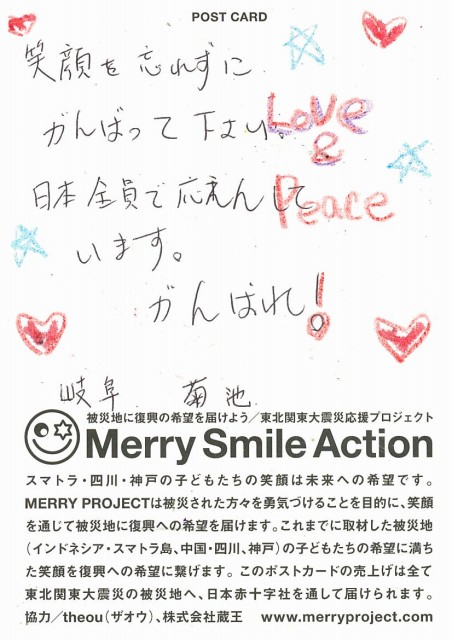 POST CARD
笑顔を忘れずに
がんばって下さい。
Love
&
Peace
日本全員で応えんして
います。
がんばれ!
岐阜 菊池
被災地に復興の希望を届けよう/東北関東大震災応援プロジェクト
Merry Smile Action
スマトラ・四川・神戸の子どもたちの笑顔は未来への希望です。
MERRY PROJECTは被災された方々を勇気づけることを目的に、笑顔
を通じて被災地に復興への希望を届けます。これまでに取材した被災地
(インドネシア・スマトラ島、中国・四川、神戸)の子どもたちの希望に満ち
た笑顔を復興への希望に繋げます。このポストカードの売上げは全て
東北関東大震災の被災地へ、日本赤十字社を通して届けられます。
協力/theou(ザオウ)、株式会社蔵王 www.merryproject.com